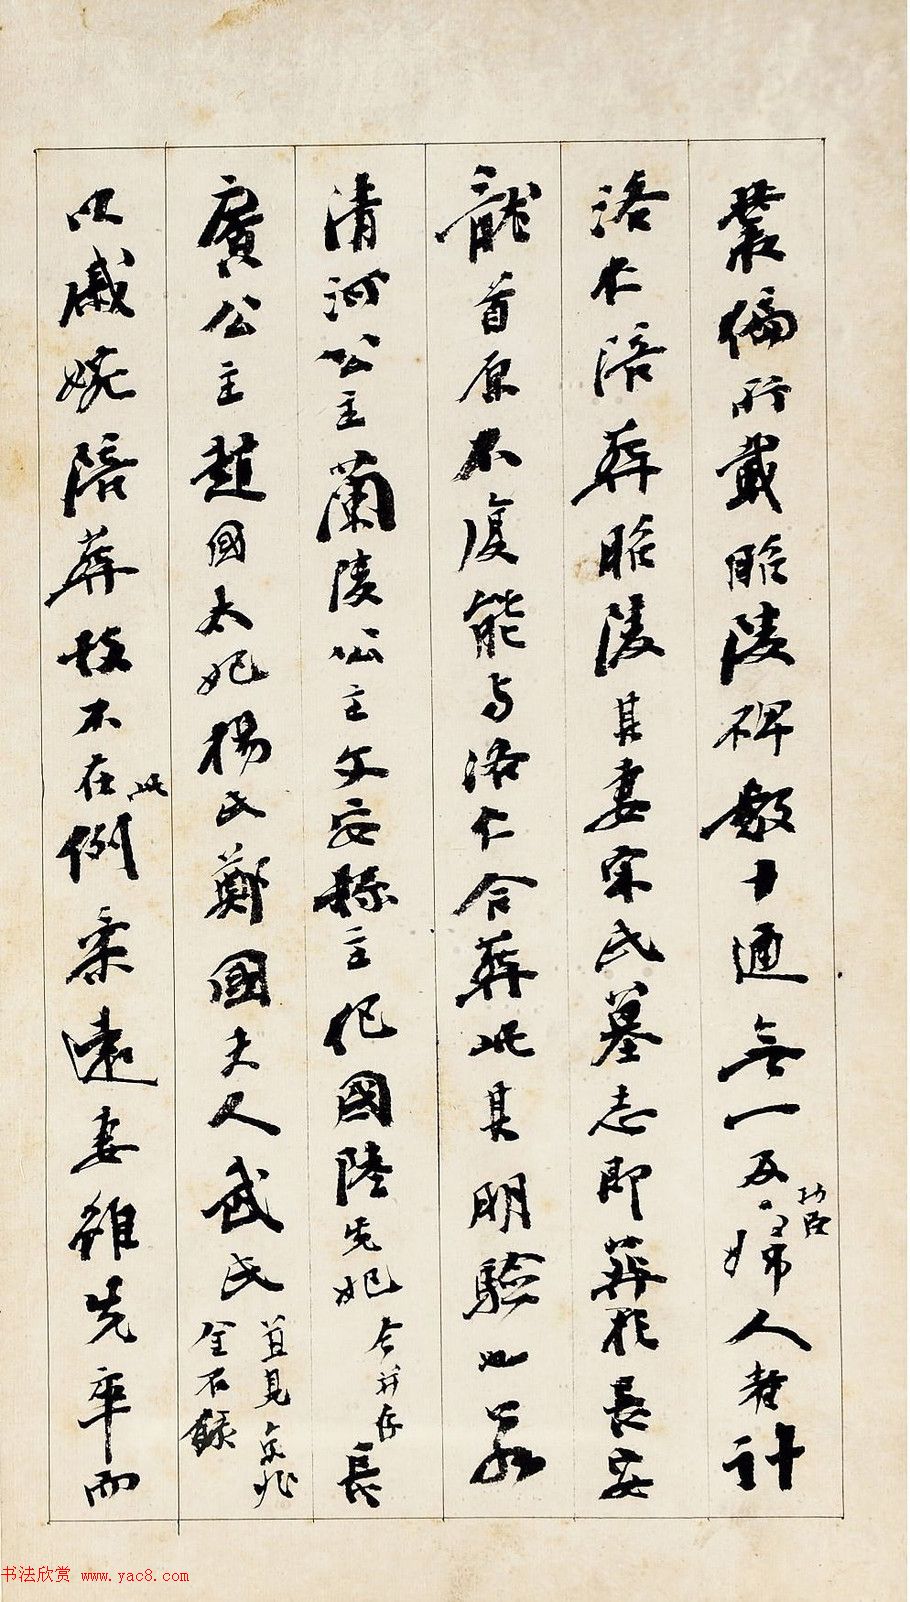 叢編所載昭陵碑數十通無一及功臣婦人者計
洛仁陪葬昭陵其妻宋氏墓志即葬於長安
龍首原不復能与洛仁合葬此其明驗也若
清河公主蘭陵公主文安縣主紀國陸先妃今并存長
廣公主趙國太妃楊氏鄭國夫人武氏並見京兆金石録
以戚婉陪葬故不在此例柔遠妻雖先卒而
书法欣赏 www.yac8.com